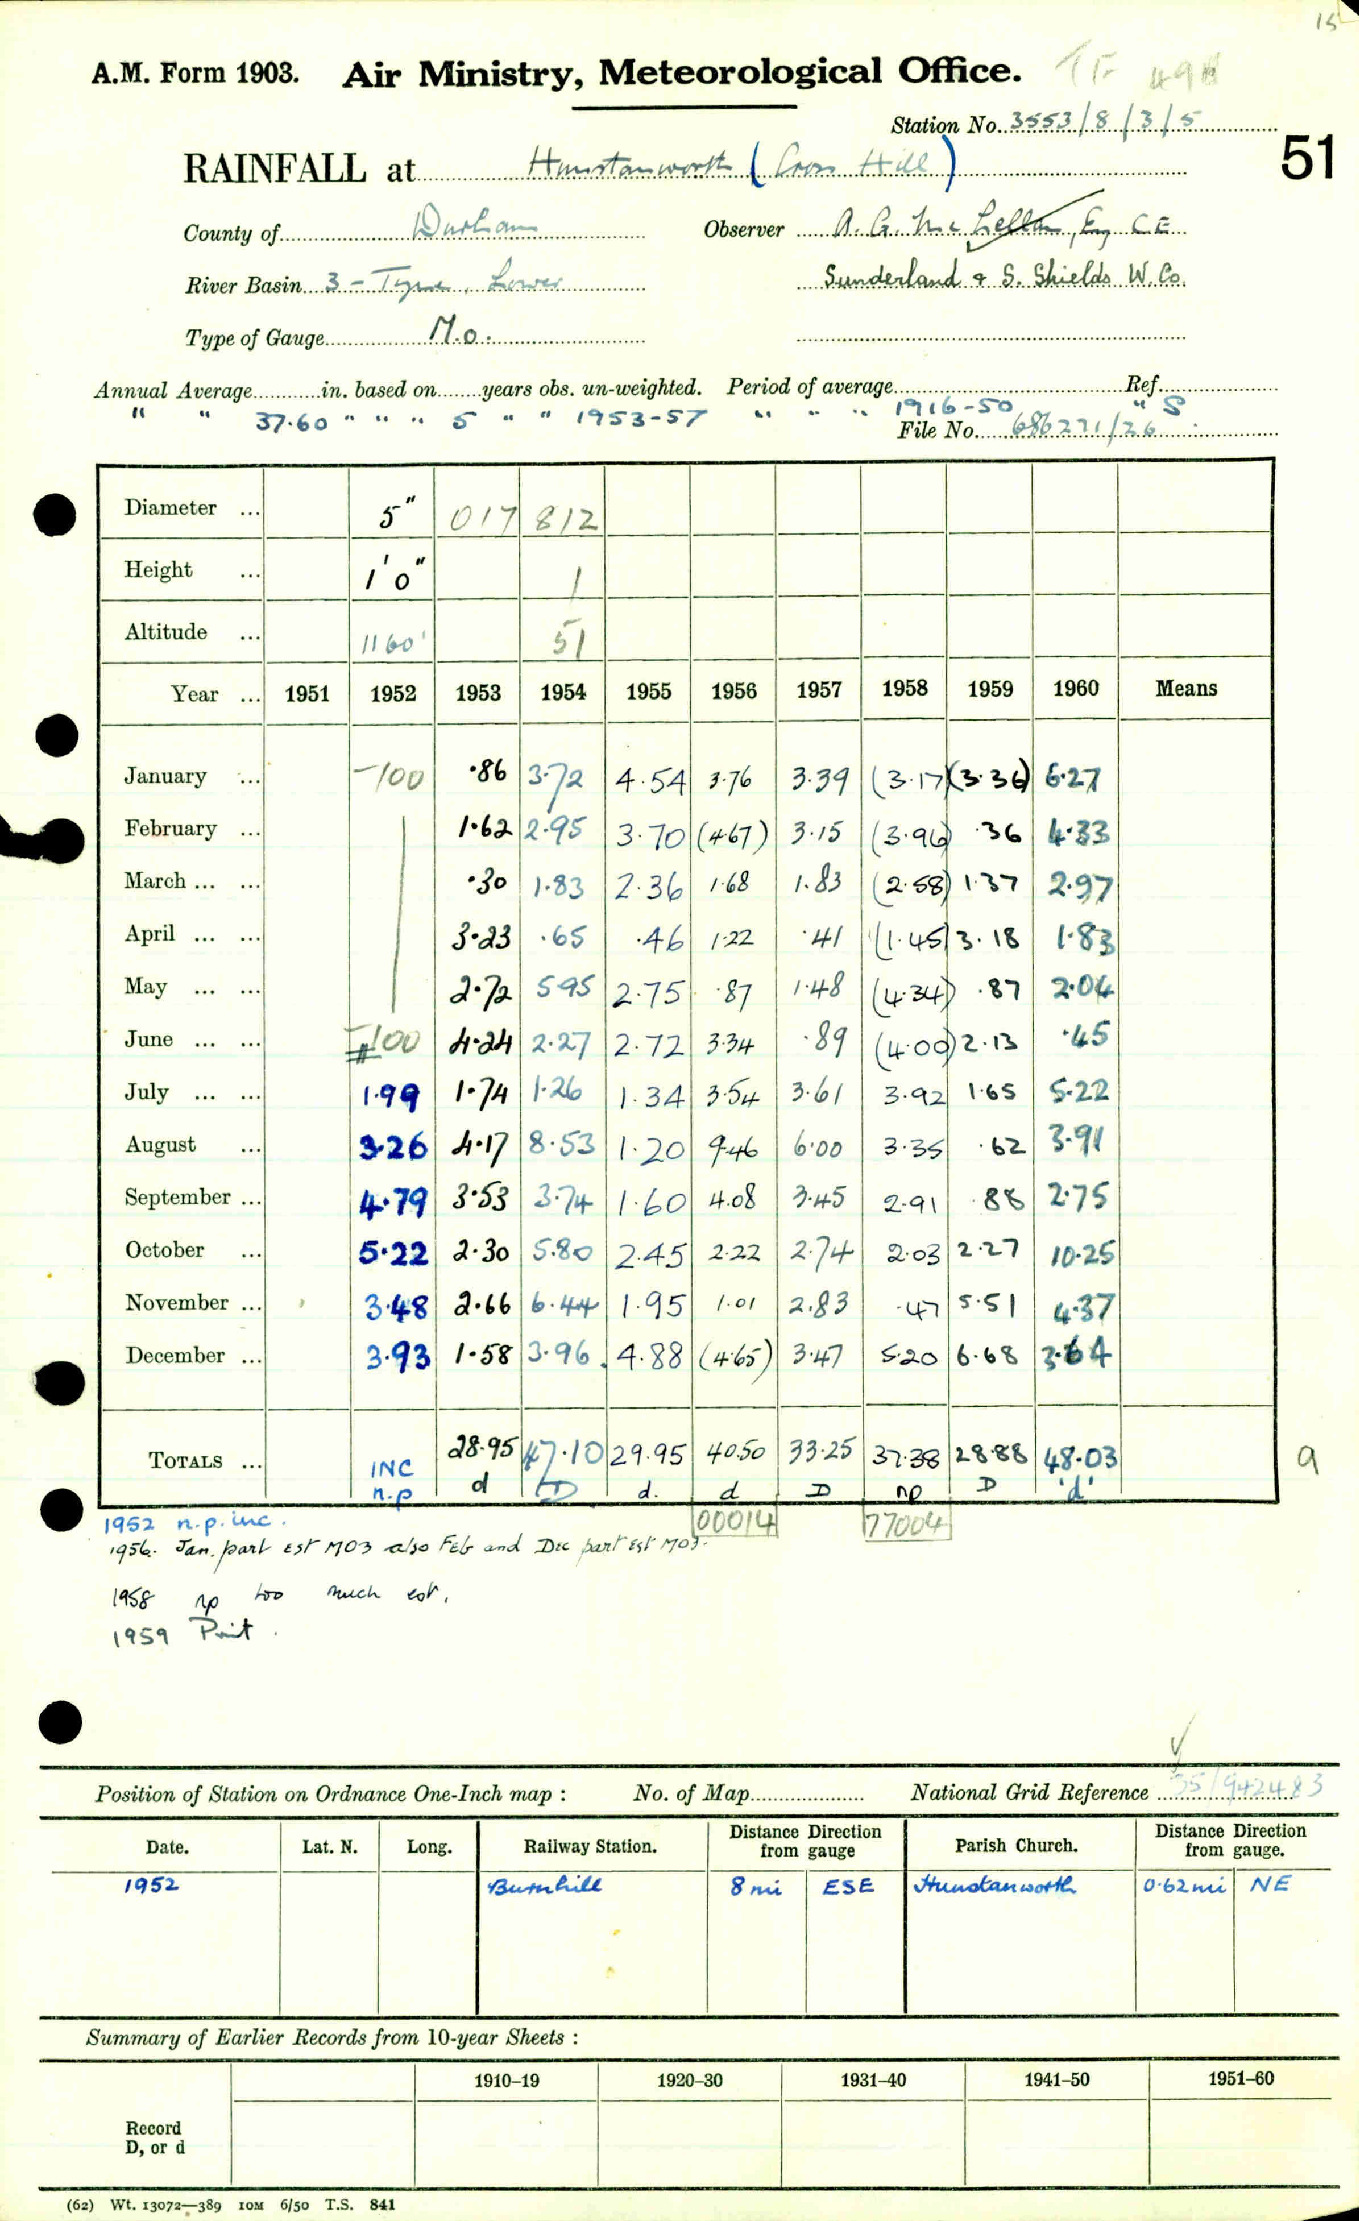 15
A.M. Form 1903. Air Ministry, Meteorological Office.
Station No. 3553/8/3/5
51
RAINFALL at Hunstanworth (Cross Hill)
County of Durham Observer A. G. Mc Lellan, Esq CE
River Basin 3 - Tyne, Lower Sunderland & S. Shields W. Co.
Type of Gauge M.O.
Annual Average in. based on years obs. un-weighted. Period of average Ref.
" " 37.60 " " " 5 " " 1953-57 " " " 1916-50 " S
File No. 686271/26
Diameter ... 5" 017 812
Height ... 1'0" 1
Altitude ... 1160' 51
Year ... 1951 1952 1953 1954 1955 1956 1957 1958 1959 1960 Means
January ... -100 .86 3.72 4.54 3.76 3.39 (3.17) (3.36) 6.27
February ... 1.62 2.95 3.70 (4.67) 3.15 (3.96) .36 4.33
March ... ... .30 1.83 2.36 1.68 1.83 (2.58) 1.37 2.97
April ... ... 3.23 .65 .46 1.22 .41 (1.45) 3.18 1.83
May ... ... 2.72 5.95 2.75 .87 1.48 (4.34) .87 2.04
June ... ... -100 4.24 2.27 2.72 3.34 .89 (4.00) 2.13 .45
July ... ... 1.99 1.74 1.26 1.34 3.54 3.61 3.92 1.65 5.22
August ... 3.26 4.17 8.53 1.20 9.46 6.00 3.35 .62 3.91
September ... 4.79 3.53 3.74 1.60 4.08 3.45 2.91 .88 2.75
October ... 5.22 2.30 5.80 2.45 2.22 2.74 2.03 2.27 10.25
November ... 3.48 2.66 6.44 1.95 1.01 2.83 .47 5.51 4.37
December ... 3.93 1.58 3.96 4.88 (4.65) 3.47 5.20 6.68 3.64
TOTALS ... INC 28.95 47.10 29.95 40.50 33.25 37.38 28.88 48.03 9
n.p d D d. d D np D 'd'
00014 77004
1952 n.p. inc.
1956. Jan. part est MO3 also Feb and Dec part est MO3.
1958 np too much est.
1959 Print.
Position of Station on Ordnance One-Inch map : No. of Map National Grid Reference 35/942483
Date. Lat. N. Long. Railway Station. Distance Direction from gauge Parish Church. Distance Direction from gauge.
1952 Burnhill 8 mi ESE Hunstanworth 0.62mi NE
Summary of Earlier Records from 10-year Sheets :
1910–19 1920–30 1931–40 1941–50 1951–60
Record
D, or d
(62) Wt. 13072—389 10M 6/50 T.S. 841